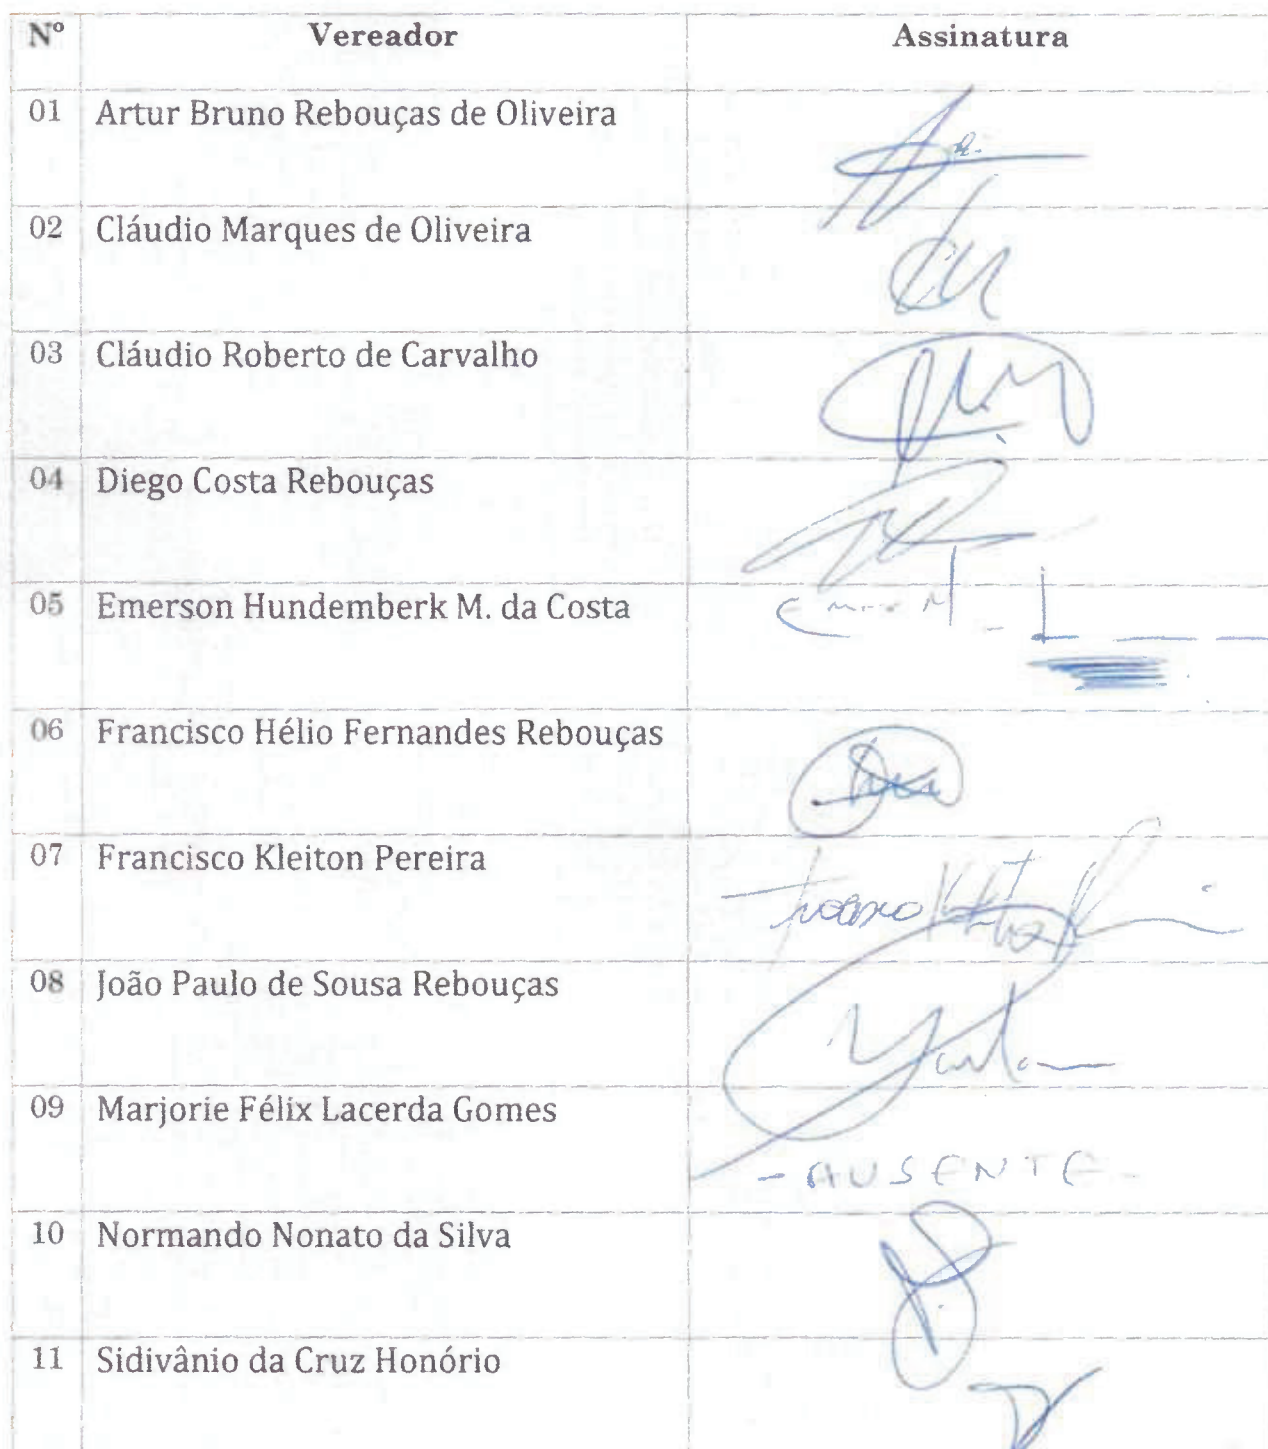 Nº Vereador Assinatura
01 Artur Bruno Rebouças de Oliveira
02 Cláudio Marques de Oliveira
03 Cláudio Roberto de Carvalho
04 Diego Costa Rebouças
05 Emerson Hundemberk M. da Costa
06 Francisco Hélio Fernandes Rebouças
07 Francisco Kleiton Pereira
08 João Paulo de Sousa Rebouças
09 Marjorie Félix Lacerda Gomes - AUSENTE -
10 Normando Nonato da Silva
11 Sidivânio da Cruz Honório